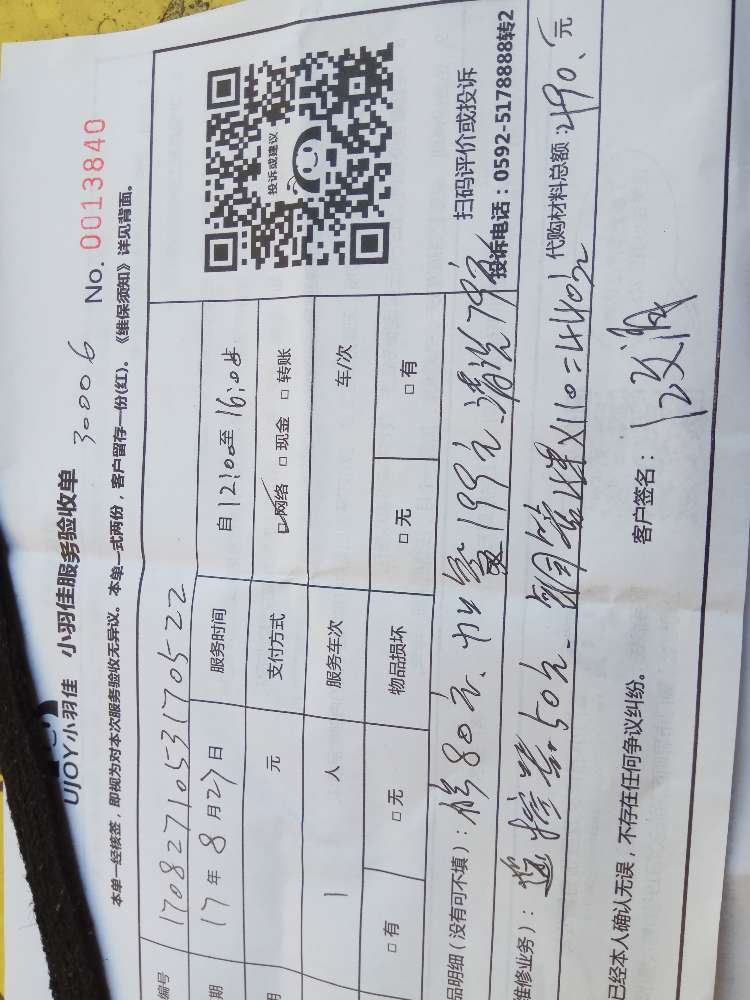 UJOY小羽佳 小羽佳服务验收单
30006 No. 0013840
本单一经核签，即视为对本次服务验收无异议。本单一式两份，客户留存一份(红)。《维保须知》详见背面。
编号 170827105317052​2
期 17年8月27日 服务时间 自12:00至16:05
用 元 支付方式 ☑网络 □现金 □转账
1 人 服务车次 车/次
□有 □无 物品损坏 □无 □有
投诉或建议
扫码评价或投诉
投诉电话：0592-5178888转2
品明细（没有可不填）：修80元、加氟199元、清洗79元
维修业务）： 遥控器50元、铜管4米×110=440元 代购材料总额：490、元
已经本人确认无误，不存在任何争议纠纷。 客户签名：